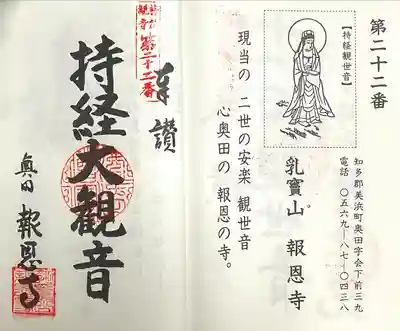 第二十二番
【持経観世音】
知多郡美浜町奥田字会下前三九
電話 〇五六九―八七―〇四三八
乳竇山 報恩寺
現当の 二世の安楽 観世音
心奥田の 報恩の寺。
奉讃
第二十二番
持経大観音
奥田 報恩寺